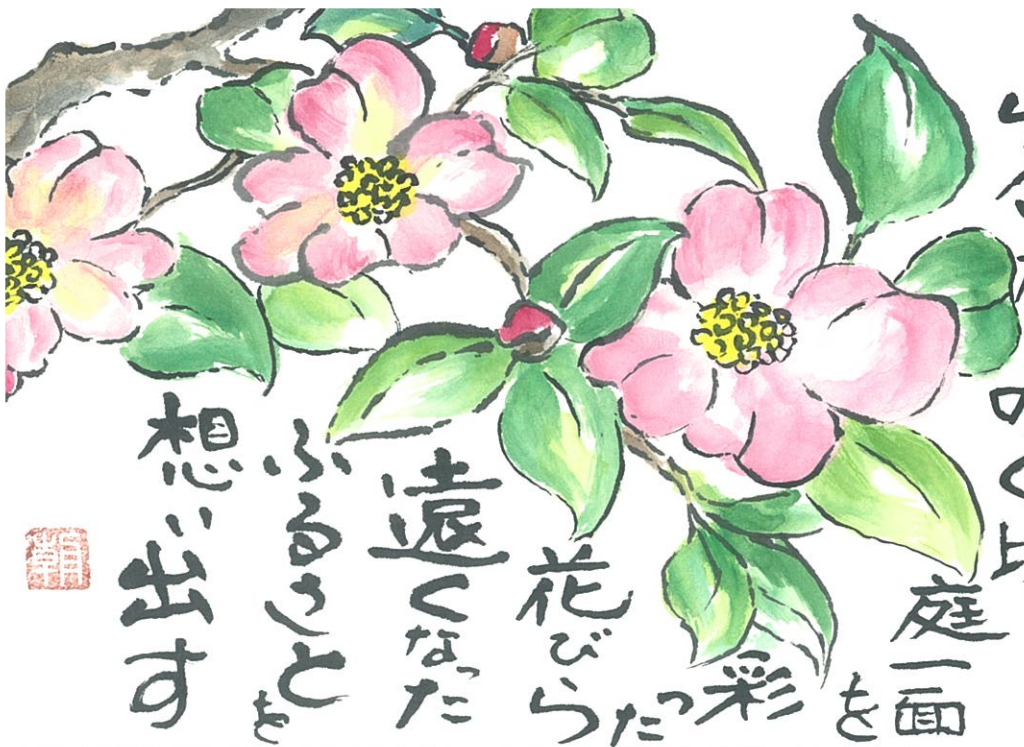 庭一面を
彩った
花びら
遠くなった
ふるさとを
想い出す
朝